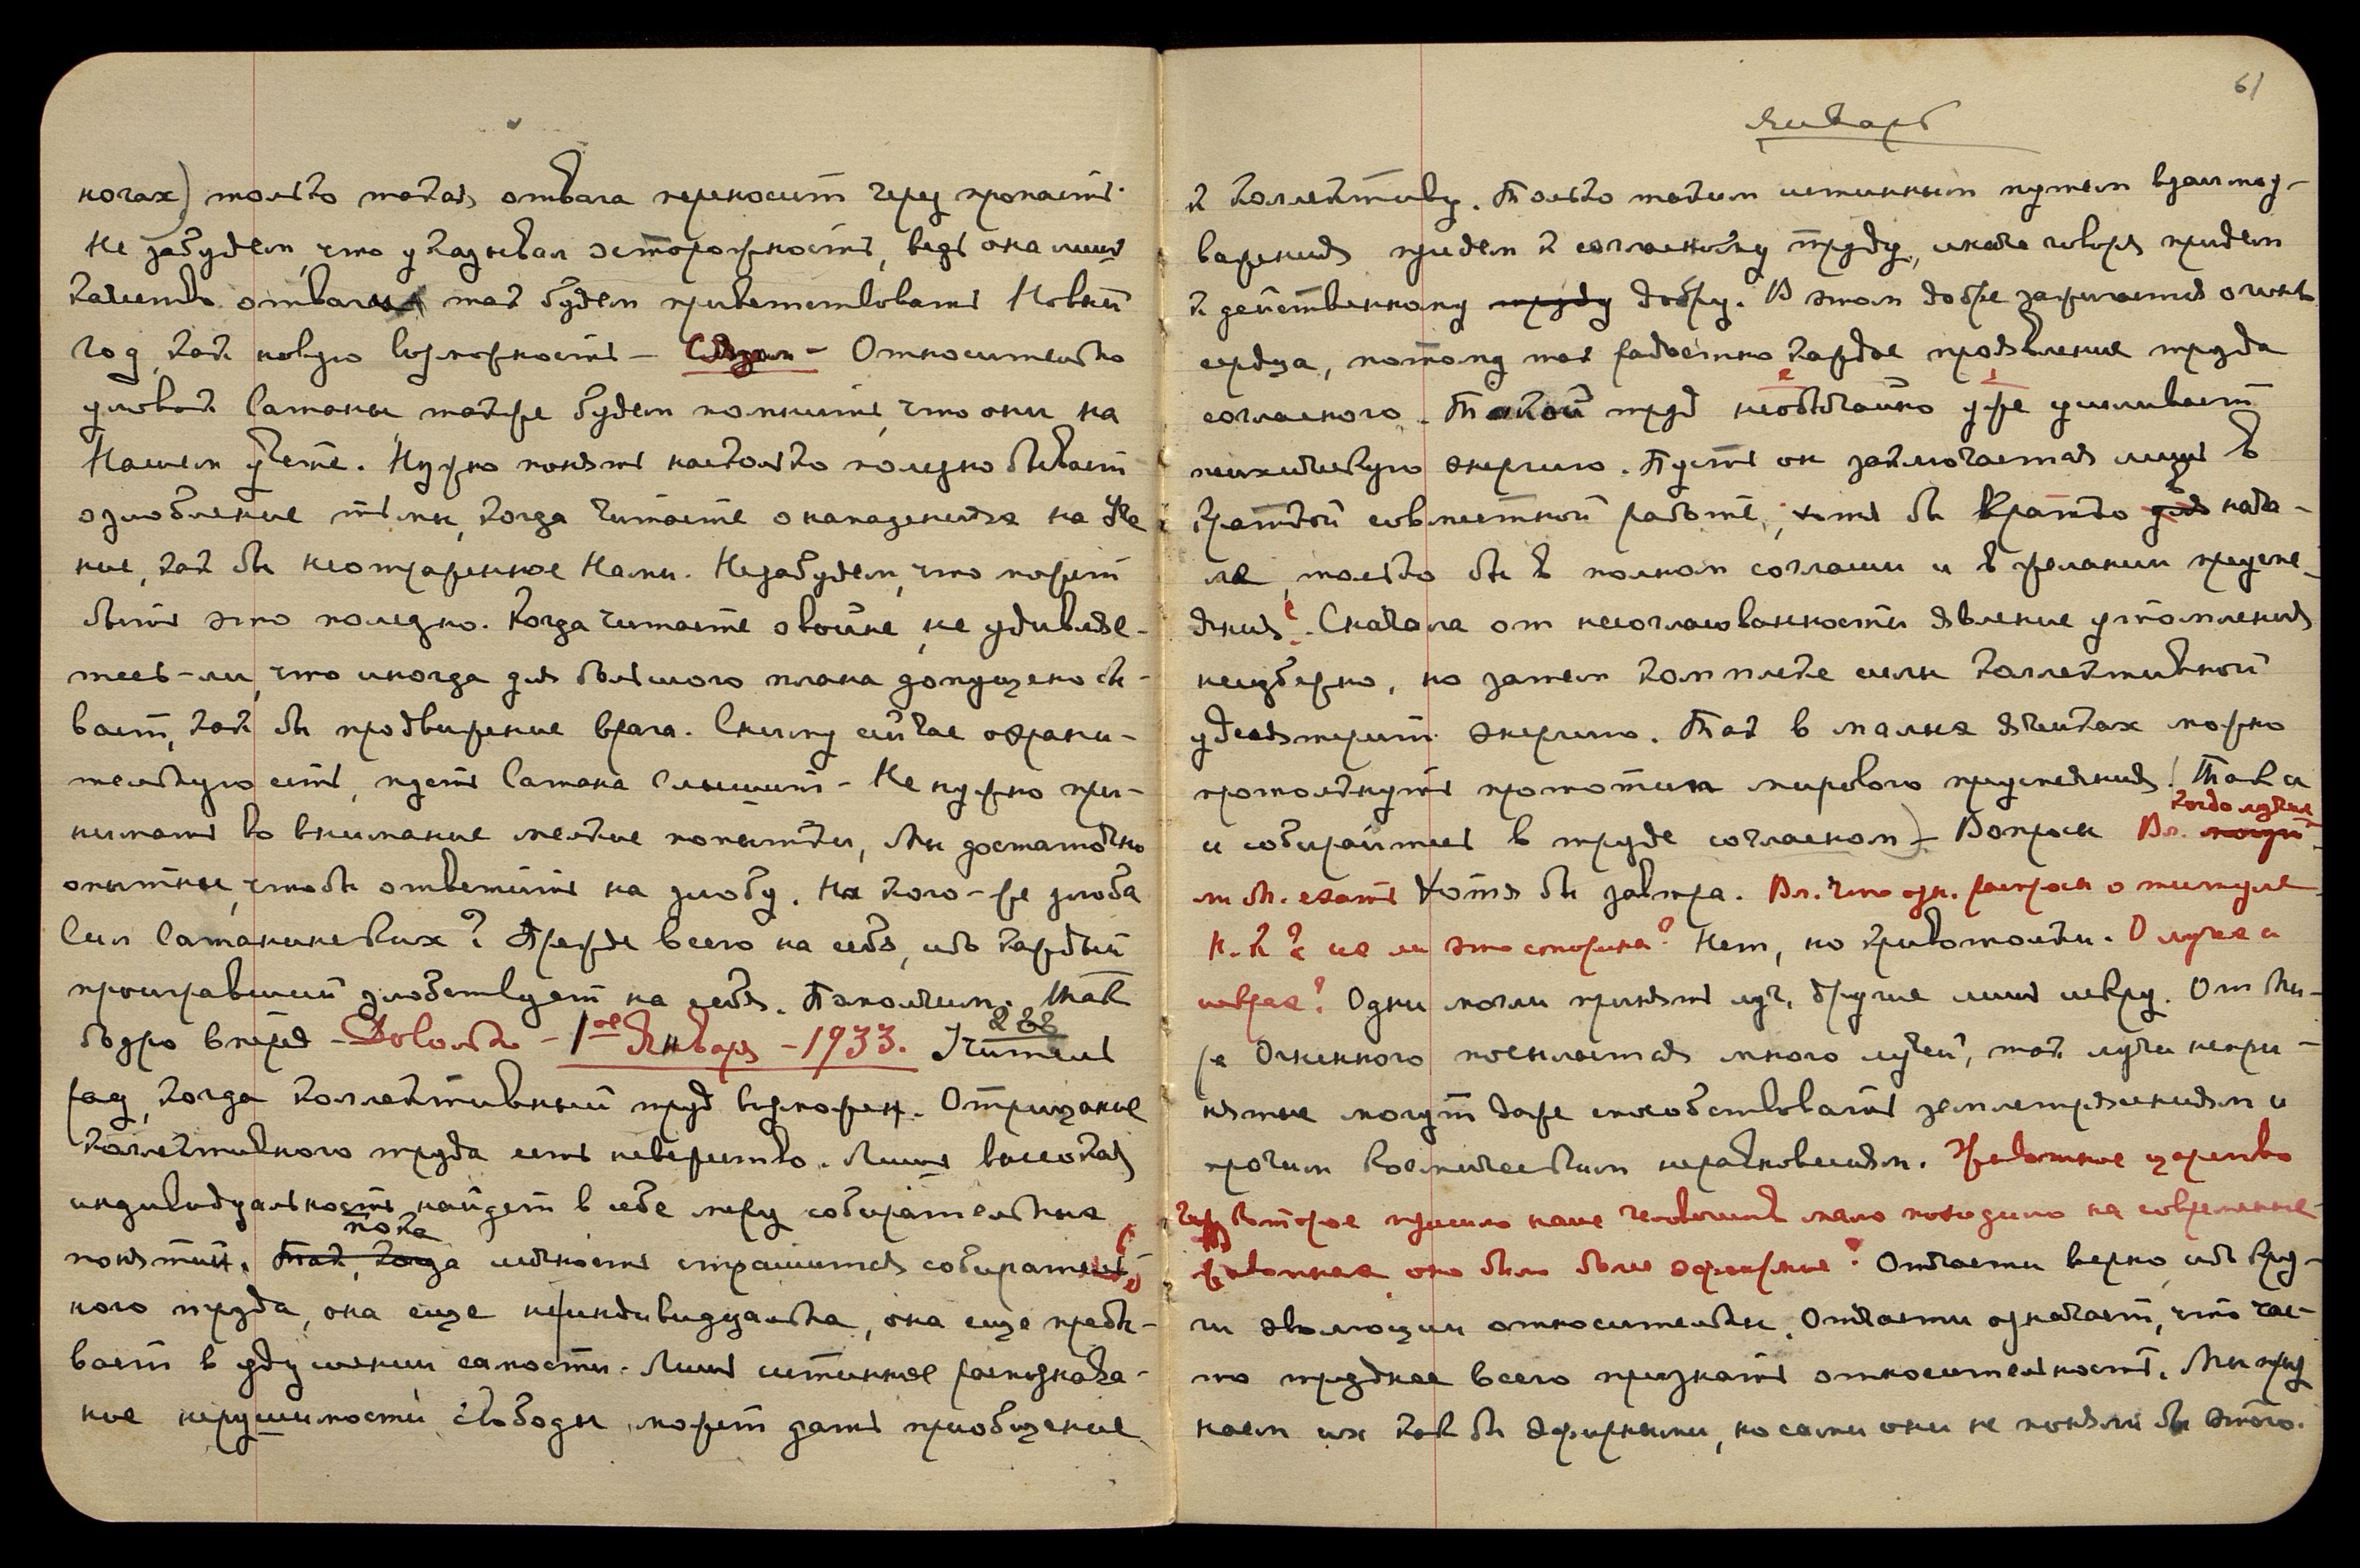 ногах) только такая отвага переносит через пропасть.
Не забудем, что указывал осторожность, ведь она лишь
качество отваги, так будем приветствовать Новый
год, как новую возможность — Сказал — Относительно
уловок Сатаны также будем помнить, что они на
Нашем учете. Нужно понять настолько полезно бывает
озлобление тьмы, когда читаете о нападениях на Уче
ние, как бы неотраженное Нами. Не забудем, что может
быть это полезно. Когда читаете о войне, не удивляе-
тесь-ли, что иногда для большого плана допущено бы-
вает, как бы продвижение врага. Сниму сейчас охрани-
тельную сеть, пусть Сатана слышит — Не нужно при-
нимать во внимание мелкие попытки, Мы достаточно
опытны, чтобы ответить на злобу. На кого-же злоба
Сил Сатанинских? Прежде всего на себя, ибо каждый
проигравший злобствует на себя. Закончим. Так
бодро вперед — Довольно — 1ое Января — 1933. Учитель
рад, когда коллективный труд возможен. Отрицание
коллективного труда есть невежество. Лишь высокая
индивидуальность найдет в себе меру собирательных
пока
понятий. Так, когда личность страшится собиратель
ного труда, она еще не индивидуальна, она еще пребы-
вает в удушении самости. Лишь истинное распознава-
ние нерушимости свободы может дать приобщение
61
Январь
к коллективу. Только таким истинным путем взаимоу-
важения придем к согласному труду, иначе говоря придем
к действенному труду добру. В этом добре зажигается огонь
сердца, потому так радостно каждое проявление труда
согласного. Такой труд необычайно уже усиливает
психическую энергию. Пусть он заключается лишь в
краткой совместной работе, хотя бы кратко для нача-
ла, только бы в полном согласии и в желании преуспе-
яния. Сначала от несогласованности явление утомления
неизбежно, но затем комплекс силы коллективной
удесятерит энергию. Так в малых ячейках можно
протолкнуть прототип мирового преуспеяния! Так и
когда лучше
и собирайтесь в труде согласном) — Вопросы Вл. могут
м. б. ехать Хотя бы завтра. Вл. что озн. распросы о титуле
Н. К? не ли это сторина? Нет, но кривотолки. О лучах и
искрах? Одни могли принять луч, другие лишь искру. От Ми-
ра Огненного посылается много лучей, так лучи непри-
нятые могут даже способствовать землетрясениям и
прочим космическим неравновесиям. Животное царство
через которое прошло наше человечество мало походило на современных
животных оно было более эфирные? Отчасти верно, ибо кру-
ги эволюции относительны. Отчасти означает, что час-
то труднее всего признать относительность. Мы приз
наем их как бы эфирными, но сами они не поняли бы этого.